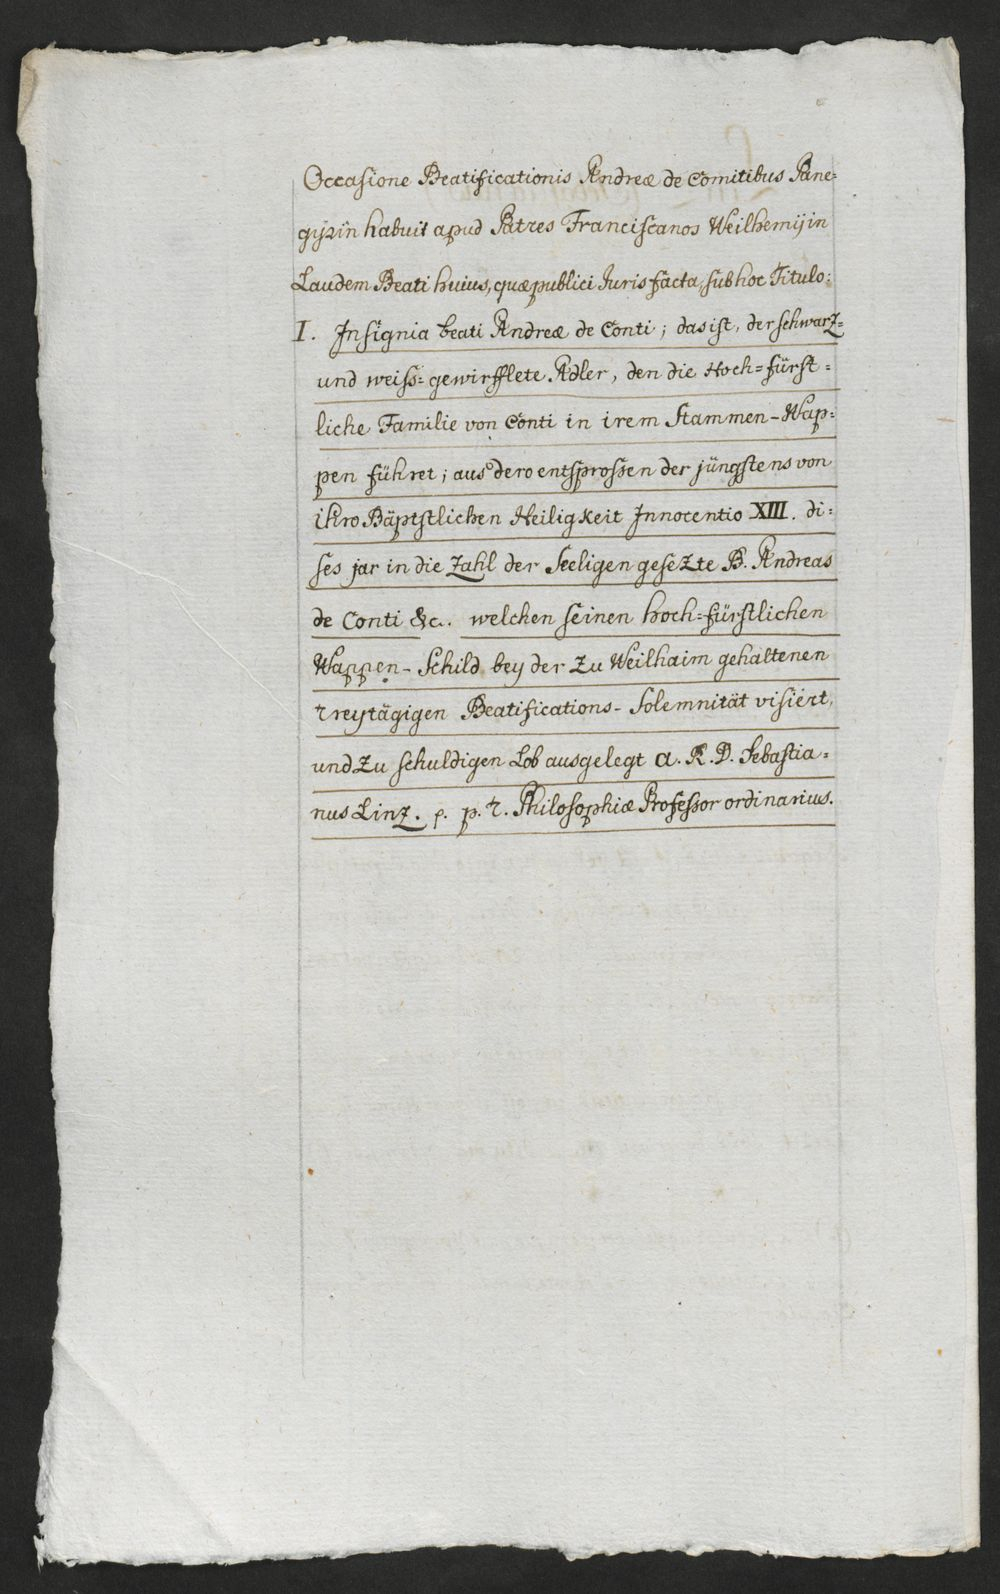 Occasione Beatificationis Andreæ de Comitibus Pane=
gyrin habuit apud Patres Franciscanos Weilhemij in
Laudem Beati huius, quæ publici Iuris facta, sub hoc Titulo:
I. Insignia beati Andreæ de Conti; das ist, der schwarz=
und weiss=gewirfflete Adler, den die Hoch=fürst=
liche Familie von Conti in irem Stammen-Wap=
pen führet; aus dero entsprossen der jüngstens von
ihro Bäpstlichen Heiligkeit Innocentio XIII. di=
ses jar in die Zahl der Seeligen gesezte B. Andreas
de Conti &c. welchen seinen hoch=fürstlichen
Wappen-Schild bey der zu Weilhaim gehaltenen
treytägigen Beatifications-Solemnität visiert,
und zu schuldigen Lob ausgelegt A. R. D. Sebastia=
nus Linz. p. p. t. Philosophiæ Professor ordinarius.